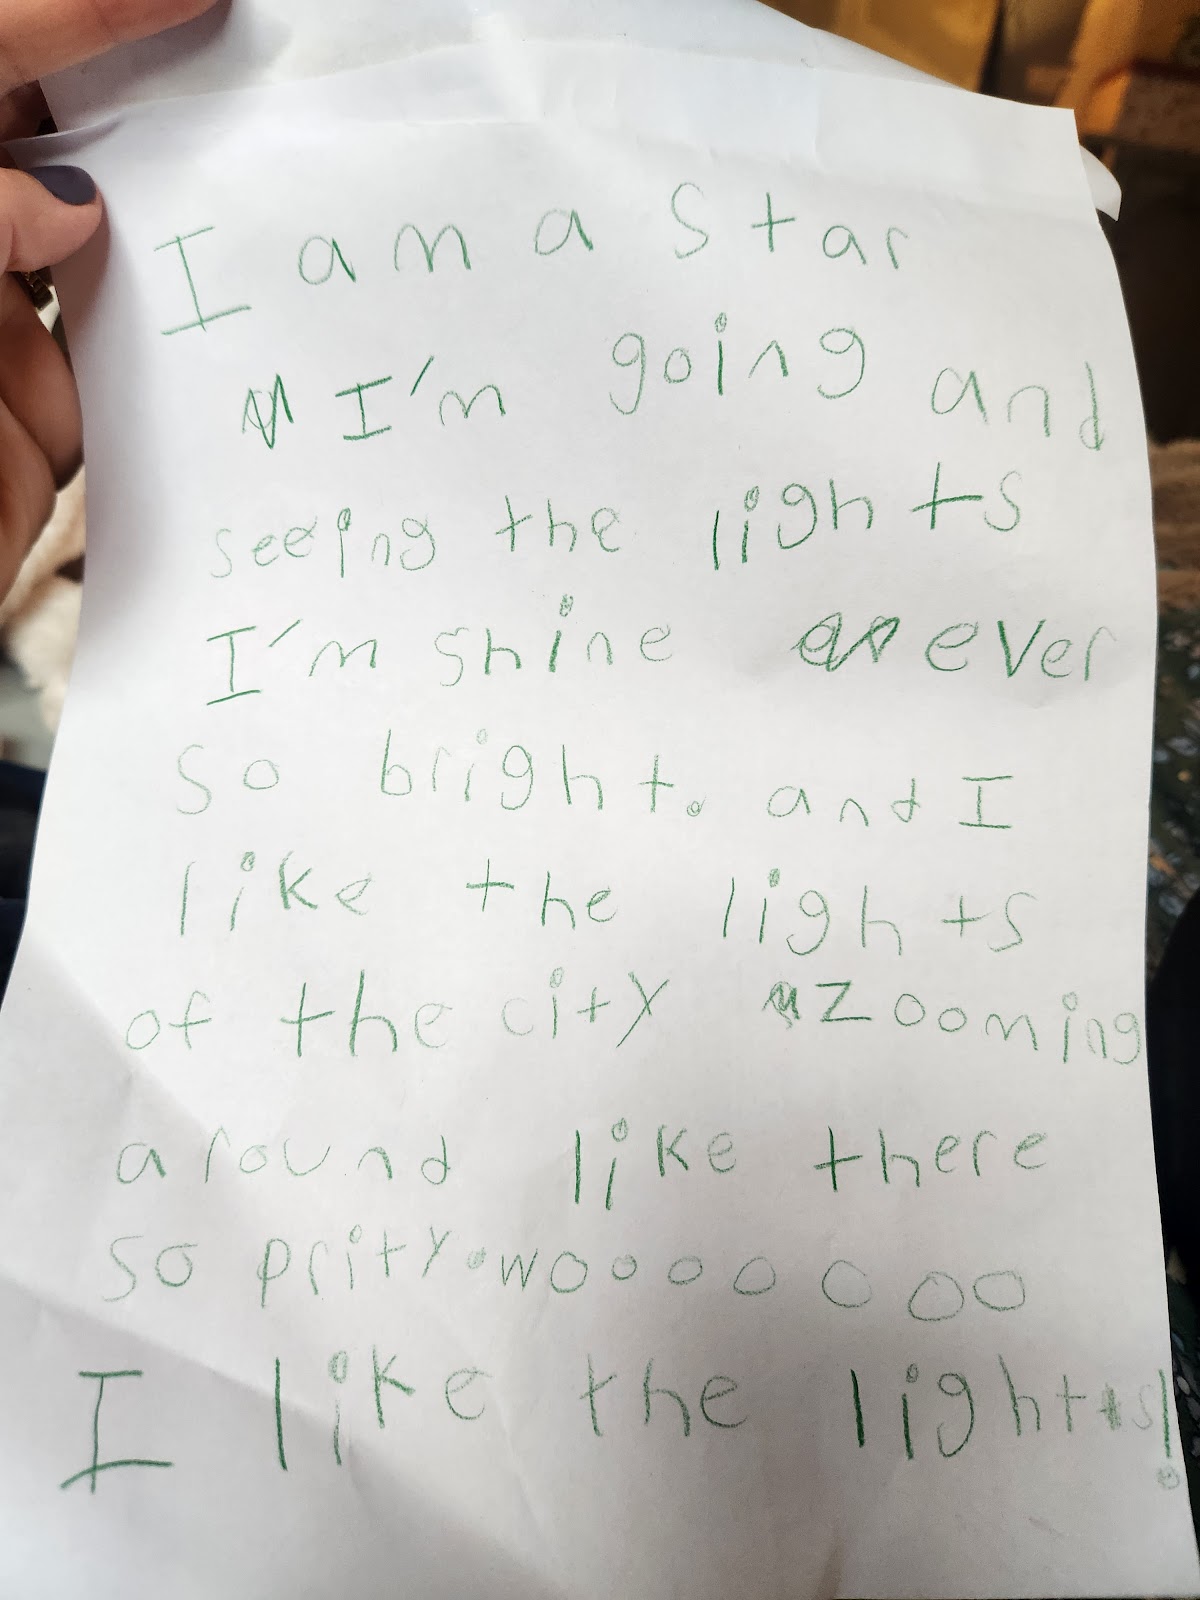 I am a star
I'm going and
seeing the lights
I'm shine ever
so bright. and I
like the lights
of the city zooming
around like there
so prity.wooooooo
I like the lights!